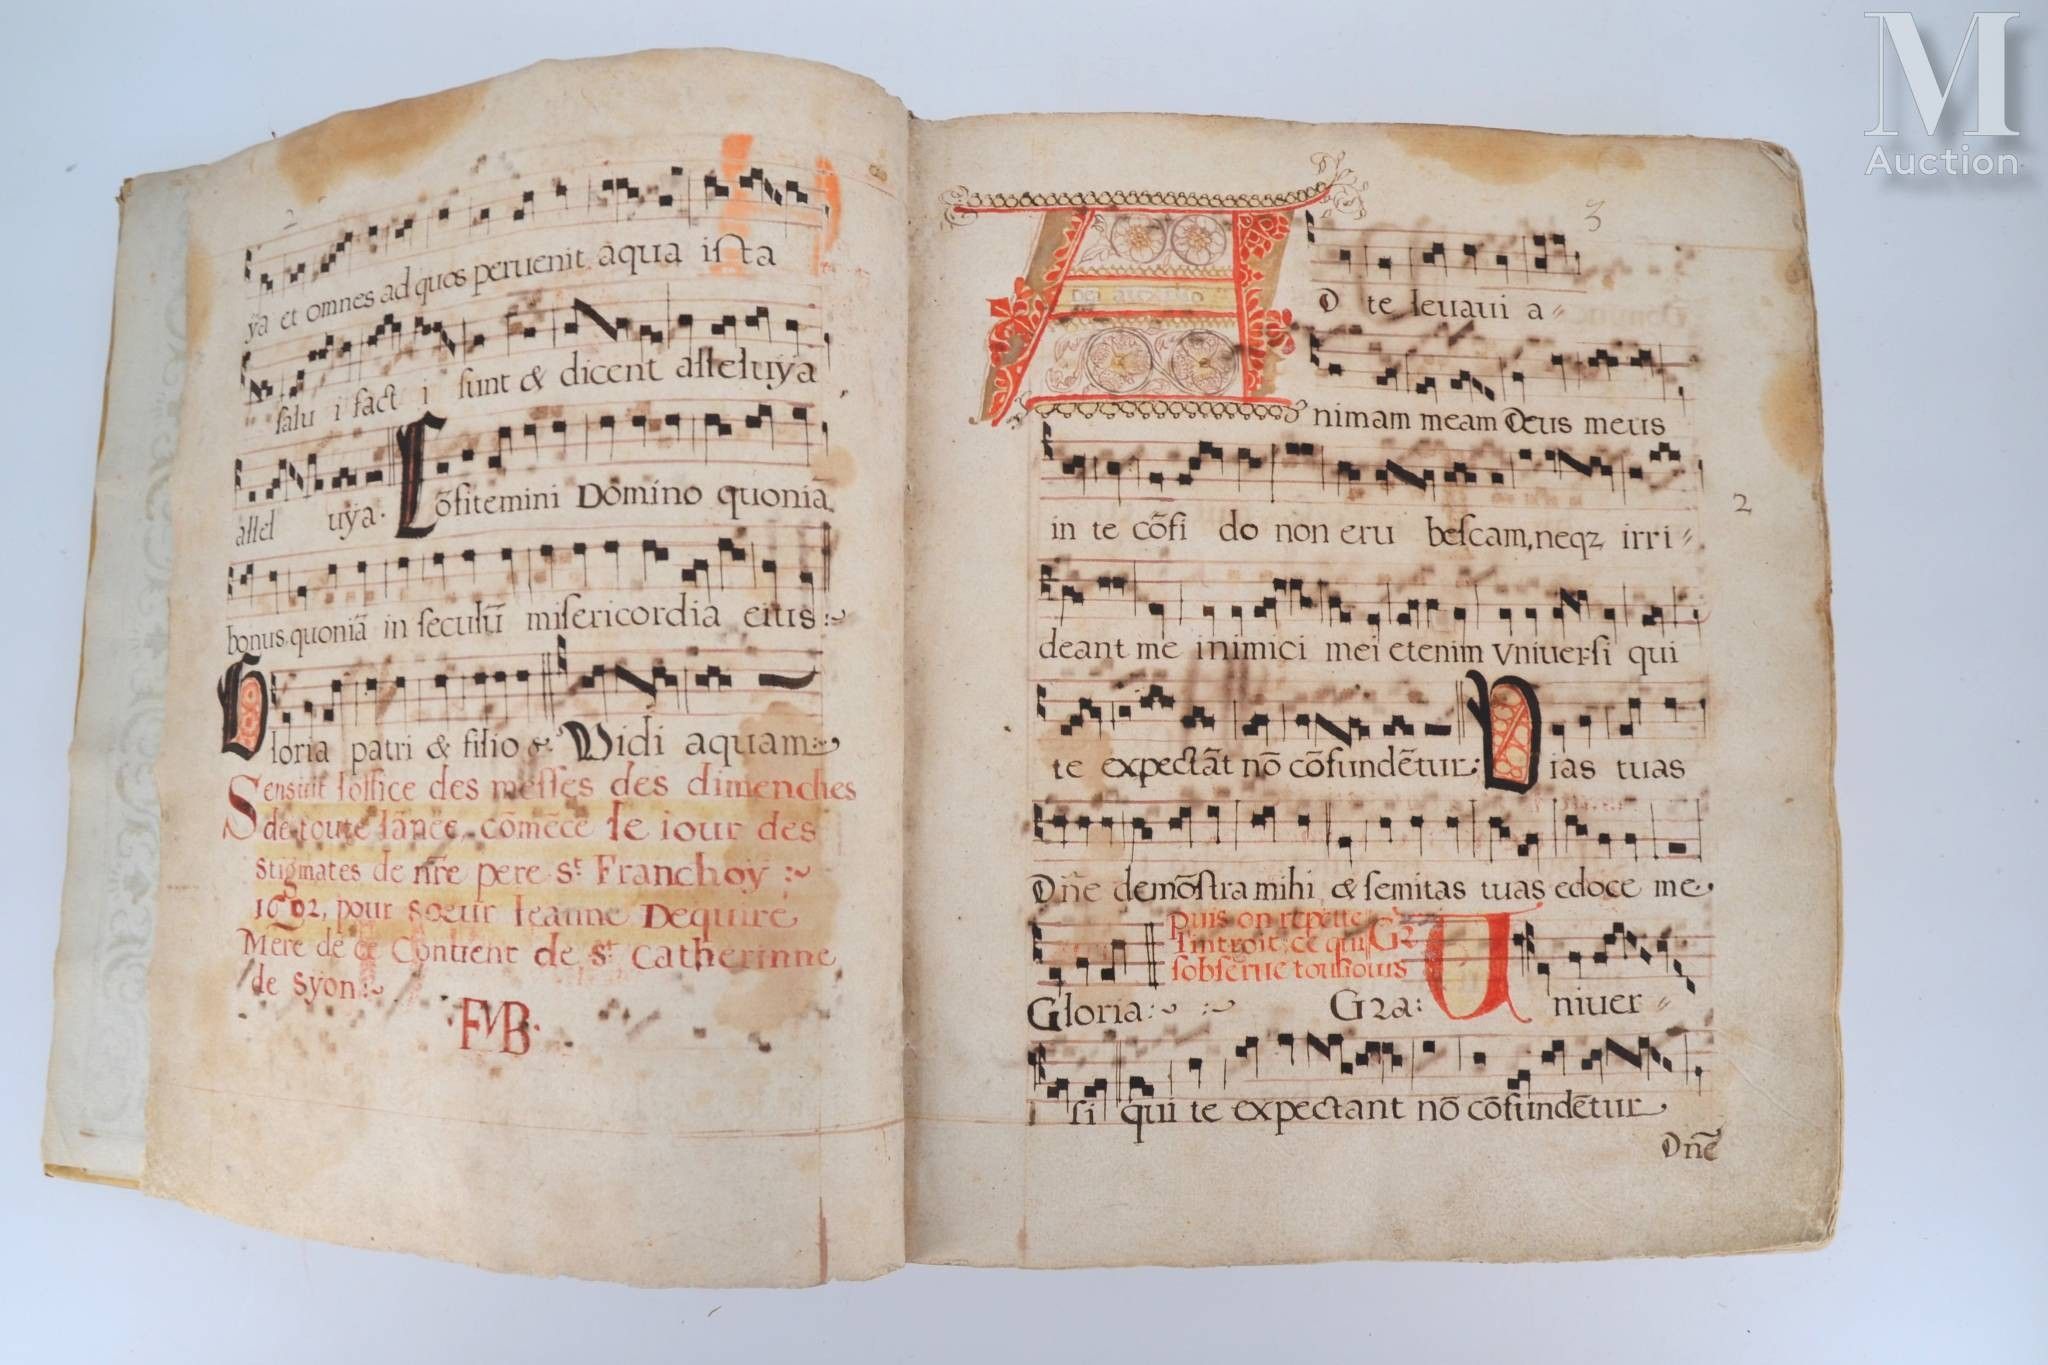 ya et omnes ad quos peruenit aqua ista
salu i fact i sunt & dicent alleluya
allel uya. Cōfitemini Domino quoniā
bonus, quoniā in seculū misericordia eius :~
Gloria patri & filio &. Vidi aquam:~
Sensuit loffice des messes des dimenches
de toute lānee, cōmēce le iour des
stigmates de nr̄e pere St Franchoy :~
pour Soeur Ieanne Dequire
Mere de ce Conuent de St Catherinne
de Syon:~
FMB.
3
D te leuaui a〃
nimam meam Deus meus
2
in te cōfi do non eru bescam, neqz irri〃
deant me inimici mei etenim Vniuersi qui
te expectāt nō cōfundētur: Vias tuas
Dn̄e demōstra mihi, & semitas tuas edoce me.
puis on repette
lintroit, ce qui
sobserue tousiours
Gloria:~ :~ G2a: Vniuer〃
si qui te expectant nō cōfundētur
Dn̄e
M
Auction